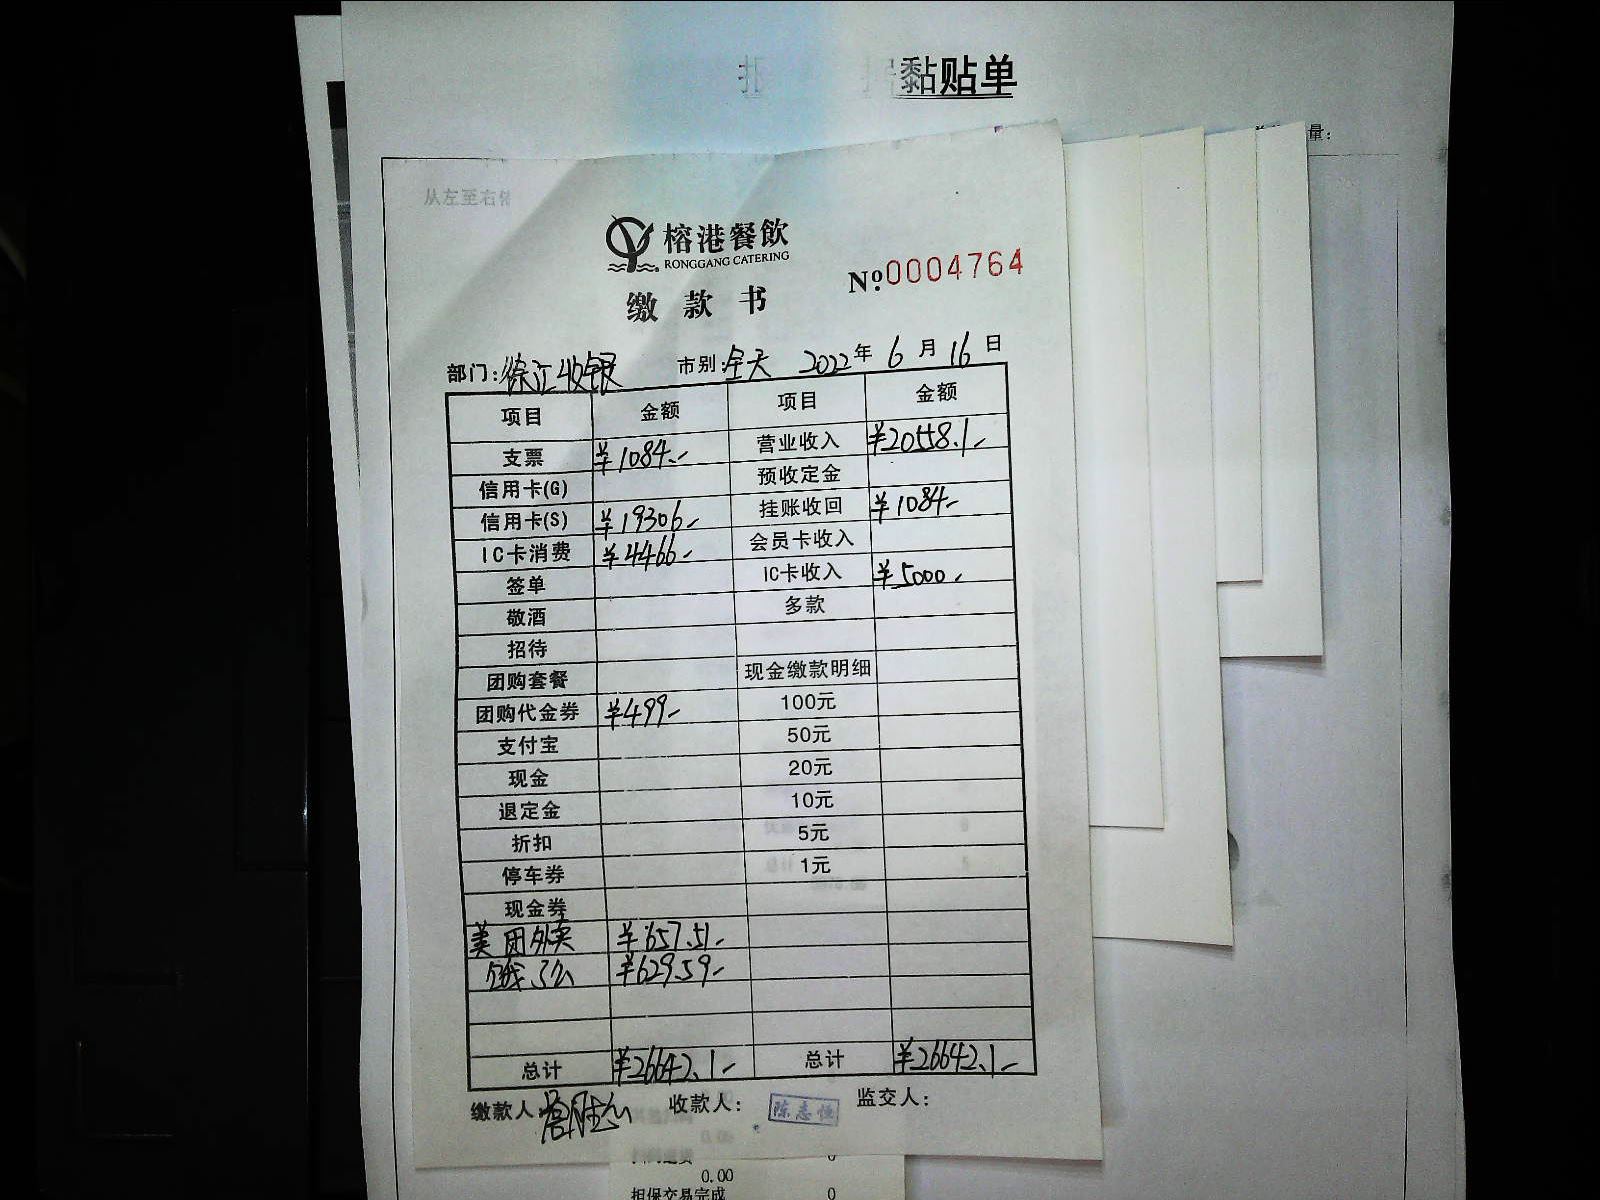 黏贴单
量：
从左至右
榕港餐飲
RONGGANG CATERING
缴款书
№0004764
部门：徐汇收银 市别：全天 2022年6月16日
项目 金额 项目 金额
支票 ¥1084.- 营业收入 ¥20558.1-
信用卡(G) 预收定金
信用卡(S) ¥19306- 挂账收回 ¥1084-
IC卡消费 ¥4466- 会员卡收入
签单 IC卡收入 ¥5000.-
敬酒 多款
招待
团购套餐 现金缴款明细
团购代金券 ¥499- 100元
支付宝 50元
现金 20元
退定金 10元
折扣 5元
停车券 1元
现金券
美团外卖 ¥657.51-
饿了么 ¥629.59-
总计 ¥26642.1- 总计 ¥26642.1-
缴款人 收款人： 陈志恒 监交人：
0
0.00
担保交易完成 0